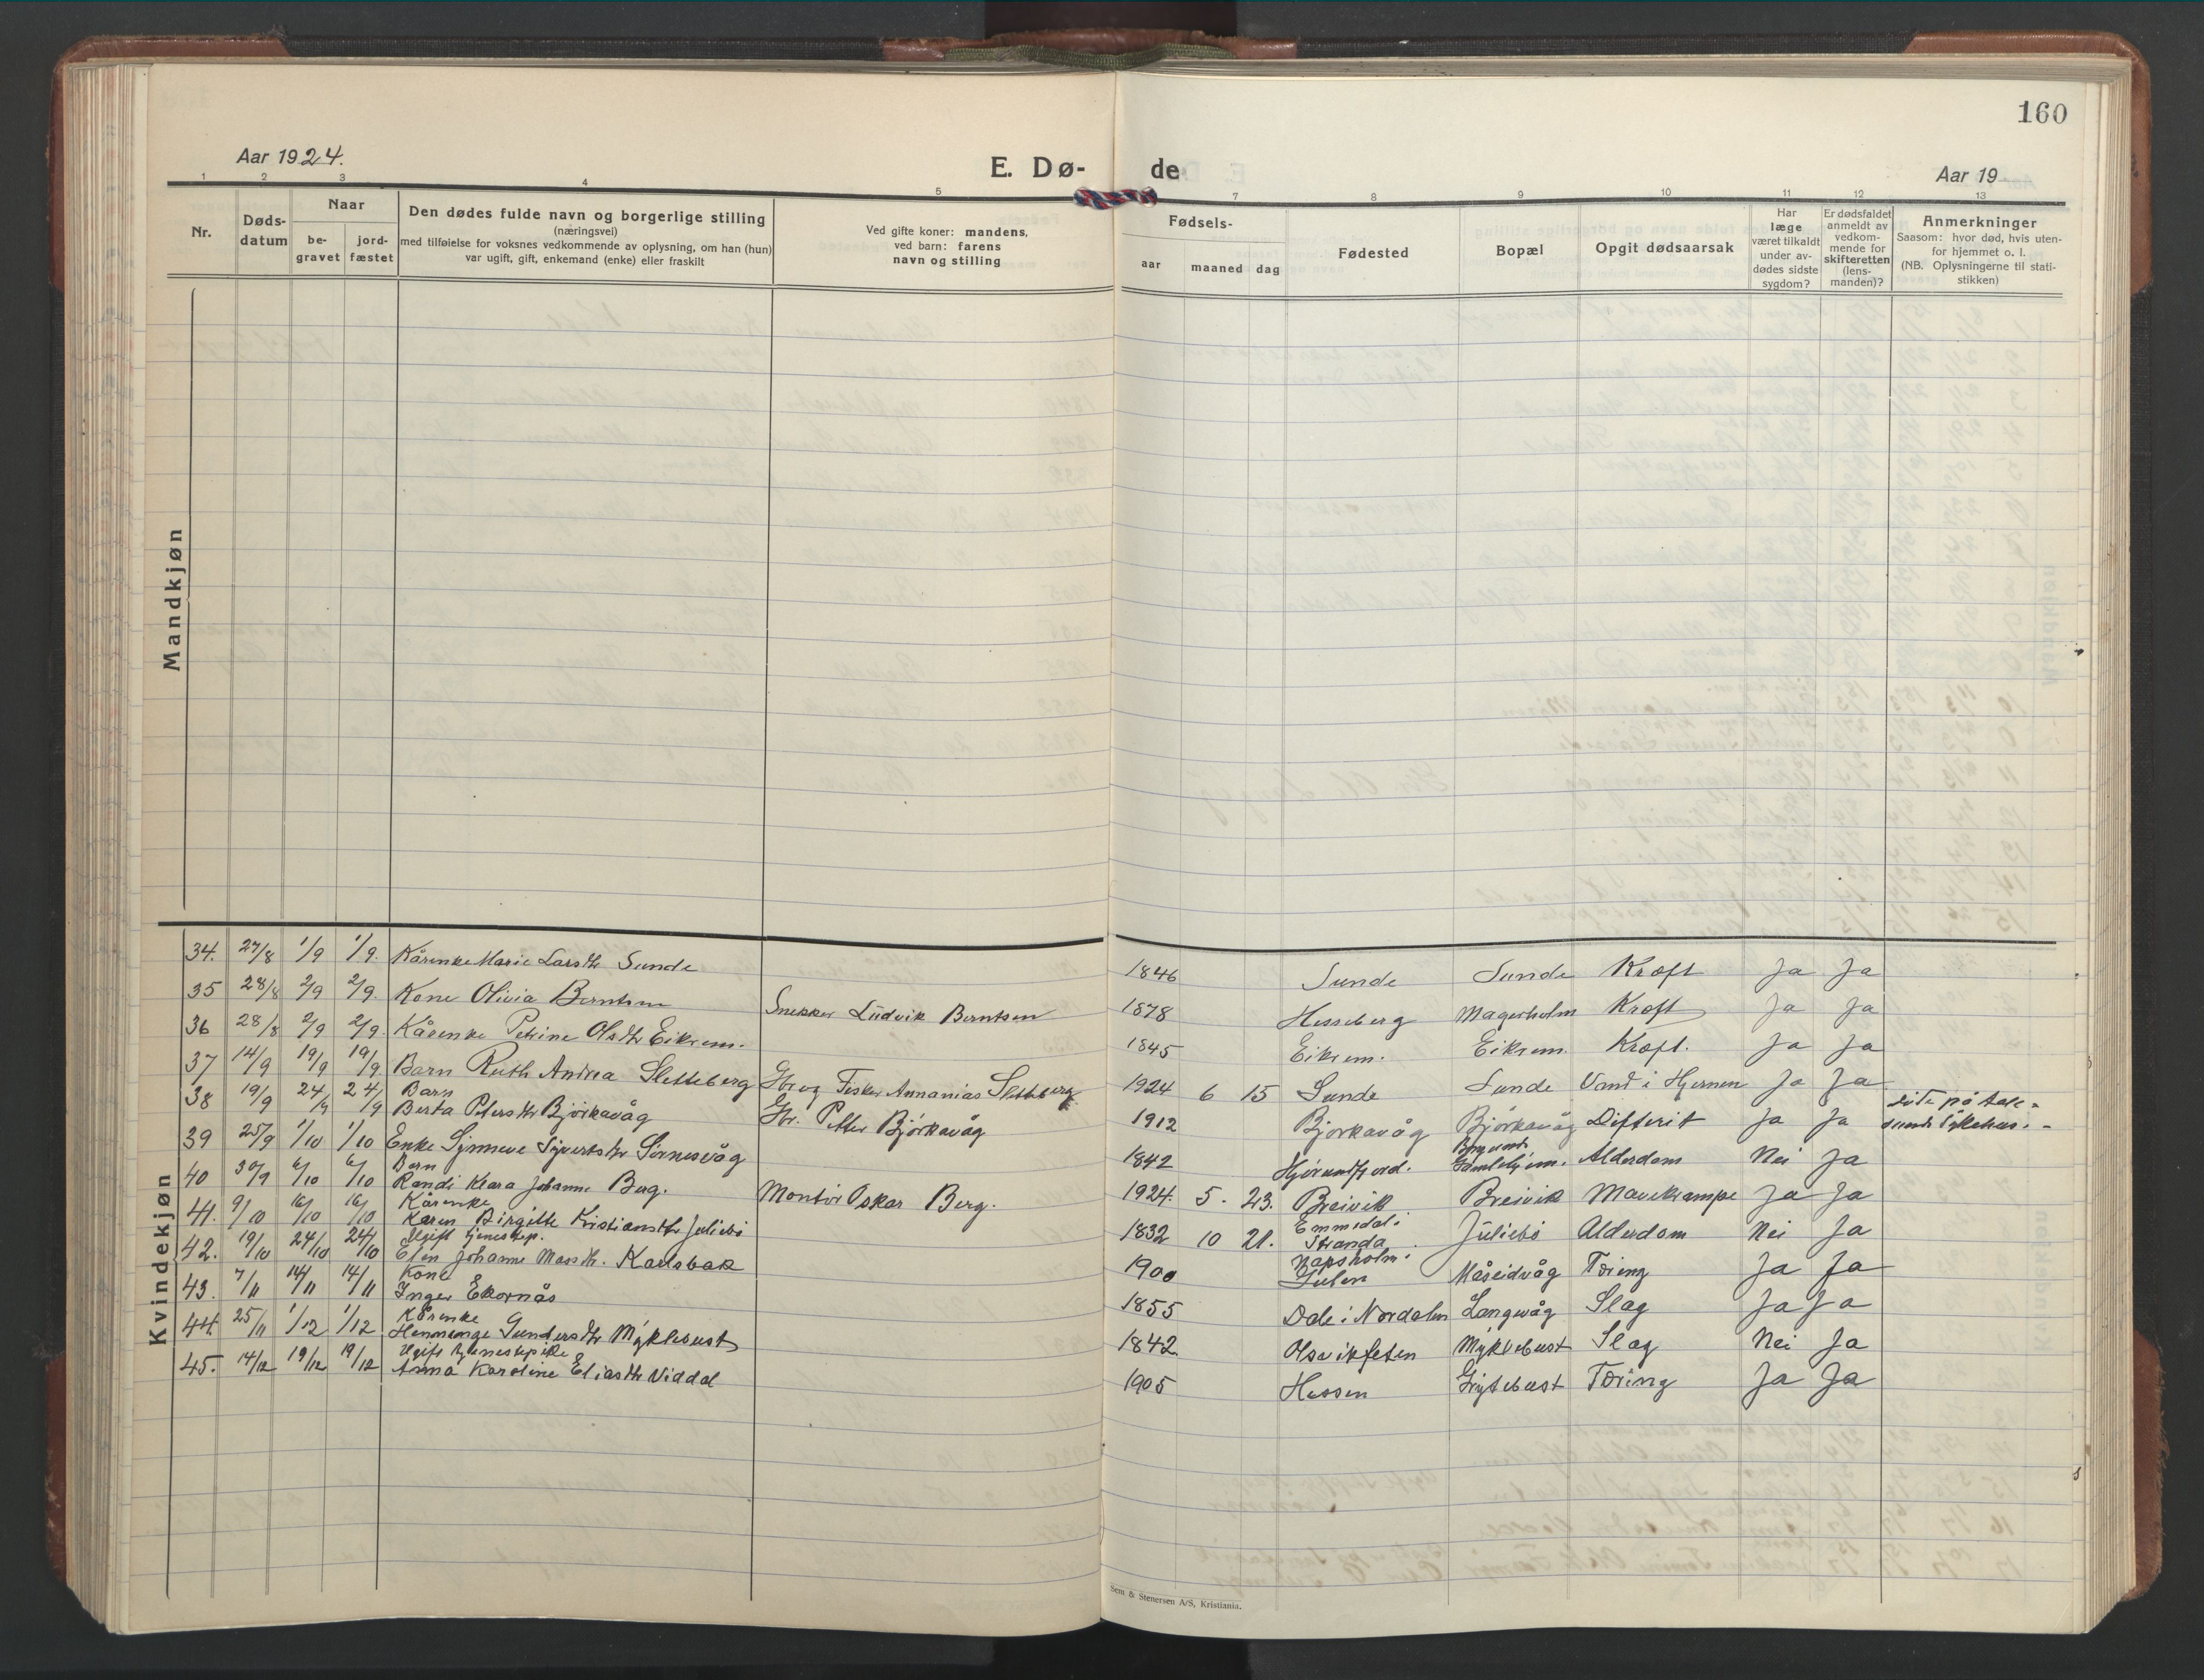 160
Aar 1924.
E. Dø-
de
Aar 19
1 2 3 4 5 7 8 9 10 11 12 13
Nr.
Døds-
datum
Naar
be-
gravet
jord-
fæstet
Den dødes fulde navn og borgerlige stilling
(næringsvei)
med tilføielse for voksnes vedkommende av oplysning, om han (hun)
var ugift, gift, enkemand (enke) eller fraskilt
Ved gifte koner: mandens,
ved barn: farens
navn og stilling
Fødsels-
aar maaned dag
Fødested
Bopæl
Opgit dødsaarsak
Har
læge
været tilkaldt
under av-
dødes sidste
sygdom?
Er dødsfaldet
anmeldt av
vedkom-
mende for
skifteretten
(lens-
manden)?
Anmerkninger
Saasom: hvor død, hvis uten-
for hjemmet o. l.
(NB. Oplysningerne til stati-
stikken)
Mandkjøn
Kvindekjøn
34. 27/8 1/9 1/9. Kårenke Marie Larsdtr Sunde 1846 Sunde Sunde Kræft Ja Ja
35 28/8 2/9 2/9. Kone Olivia Berntsen Snekker Ludvik Berntsen 1878 Hesseberg Magerholm Kræft Ja Ja
36 28/8 2/9 2/9. Kårenke Petrine Olsdtr Eikrem. 1845 Eikrem. Eikrem. Kræft. Ja Ja
37 14/9 19/9 19/9. Barn Ruth Andrea Sletteberg Gbr og Fisker Annanias Sletteberg 1924 6 15 Sunde Sunde Vand i Hjernen Ja Ja
38 19/9 24/9 24/9 Barn
Berta Petersdtr Bjørkavåg Gbr. Petter Bjørkavåg 1912 Bjørkavåg Bjørkavåg Difterit Ja Ja
på Aale-
sunds Sykehus.
39 25/9 1/10 1/10 Enke Synneve Sivertsdtr Sørnesvåg 1842 Hjørundfjord. Borgund
Gamlehjem. Alderdom Nei Ja
40 30/9 6/10 6/10 Barn
Randi Klara Johanne Berg. Montør Oskar Berg. 1924. 5. 23. Breivik Breivik Mavekrampe Ja Ja
41. 9/10 16/10 16/10 Kårenke
Karen Birgitte Kristiansdtr Juliebø 1832 10 21. Emmedal i
Stranda Juliebø Alderdom Nei Ja
42. 19/10 24/10 24/10 Ugift tjenestep.
Elen Johanne Masdtr. Karlsbak 1900 i
Gulen Måseidvåg Tæring Ja Ja
43. 7/11 14/11 14/11 Kone
Inger Ekornås 1855 Dale i Nordalen Langevåg Slag Ja Ja
44. 25/11 1/12 1/12 Kårenke
Gundersdtr Myklebust 1842 Olsvikfeten Myklebust Slag Nei Ja
45. 14/12 19/12 19/12 Ugift tjenestepike
Anna Karoline Eliasdtr Viddal 1905 Hessen Grytebust Tæring Ja Ja
Sem & Stenersen A/S, Kristiania.